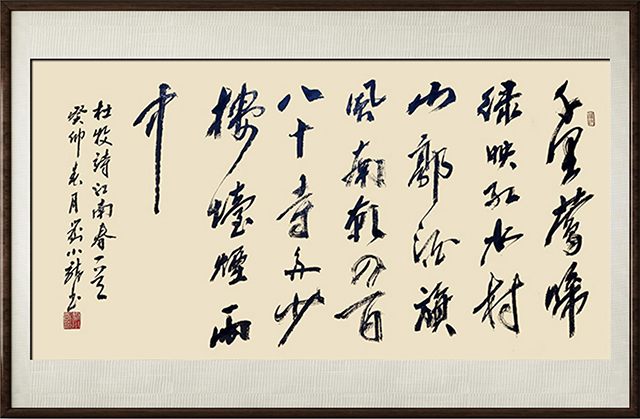 千里鶯啼
绿映红水村
山郭酒旗
風南朝四百
八十寺多少
樓臺煙雨
中
杜牧詩江南春一首
癸卯春月小书